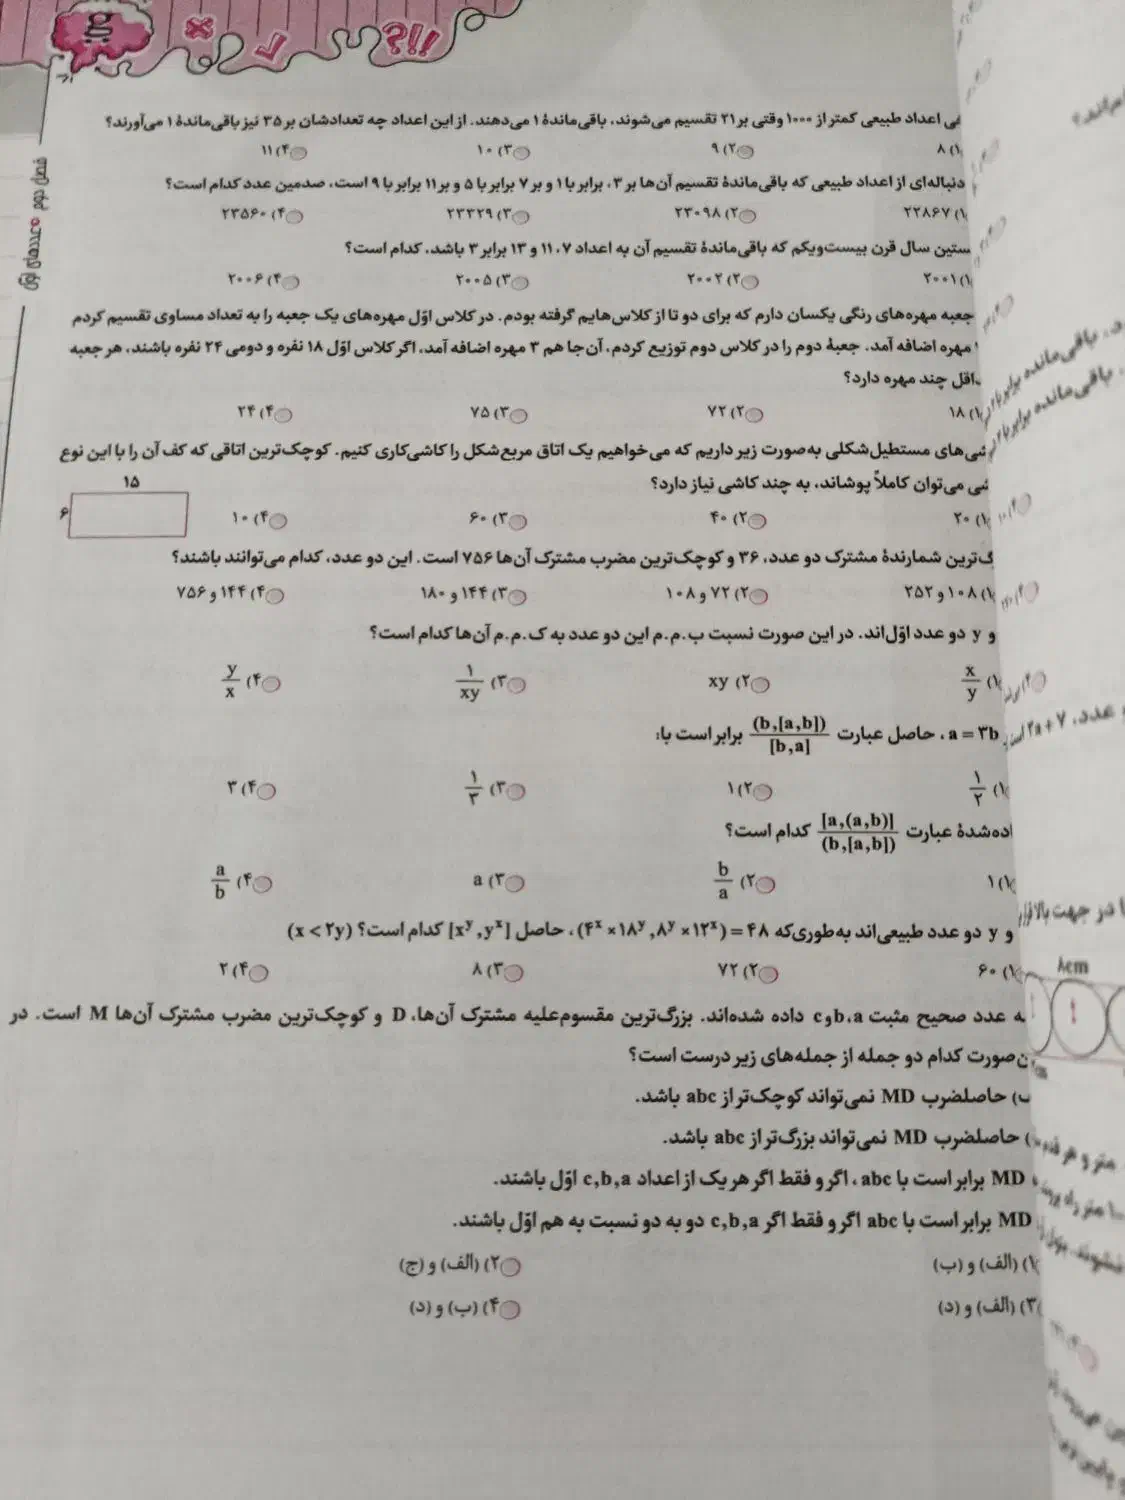 ?!!
فصل دوم • عددهای اول
اعداد طبیعی کمتر از ۱۰۰۰ وقتی بر ۲۱ تقسیم می‌شوند، باقی‌ماندهٔ ۱ می‌دهند. از این اعداد چه تعدادشان بر ۳۵ نیز باقی‌ماندهٔ ۱ می‌آورند؟
۱) ۸ ۲) ۹ ۳) ۱۰ ۴) ۱۱
دنباله‌ای از اعداد طبیعی که باقی‌ماندهٔ تقسیم آن‌ها بر ۳، برابر با ۱ و بر ۷ برابر با ۵ و بر ۱۱ برابر با ۹ است، صدمین عدد کدام است؟
۱) ۲۲۸۶۷ ۲) ۲۳۰۹۸ ۳) ۲۳۳۲۹ ۴) ۲۳۵۶۰
سال قرن بیست‌ویکم که باقی‌ماندهٔ تقسیم آن به اعداد ۷، ۱۱ و ۱۳ برابر ۳ باشد، کدام است؟
۱) ۲۰۰۱ ۲) ۲۰۰۲ ۳) ۲۰۰۵ ۴) ۲۰۰۶
جعبه مهره‌های رنگی یکسان دارم که برای دو تا از کلاس‌هایم گرفته بودم. در کلاس اوّل مهره‌های یک جعبه را به تعداد مساوی تقسیم کردم
مهره اضافه آمد. جعبهٔ دوم را در کلاس دوم توزیع کردم، آن‌جا هم ۳ مهره اضافه آمد، اگر کلاس اوّل ۱۸ نفره و دومی ۲۴ نفره باشند، هر جعبه
چند مهره دارد؟
۱) ۱۸ ۲) ۷۲ ۳) ۷۵ ۴) ۲۴
مستطیل‌شکلی به‌صورت زیر داریم که می‌خواهیم یک اتاق مربع‌شکل را کاشی‌کاری کنیم. کوچک‌ترین اتاقی که کف آن را با این نوع
می‌توان کاملاً پوشاند، به چند کاشی نیاز دارد؟
۱۵
۶
۱) ۲۰ ۲) ۴۰ ۳) ۶۰ ۴) ۱۰
شمارندهٔ مشترک دو عدد، ۳۶ و کوچک‌ترین مضرب مشترک آن‌ها ۷۵۶ است. این دو عدد، کدام می‌توانند باشند؟
۱) ۱۰۸ و ۲۵۲ ۲) ۷۲ و ۱۰۸ ۳) ۱۴۴ و ۱۸۰ ۴) ۱۴۴ و ۷۵۶
و y دو عدد اوّل‌اند. در این صورت نسبت ب.م.م این دو عدد به ک.م.م آن‌ها کدام است؟
۱) x/y ۲) xy ۳) ۱/xy ۴) y/x
a = ۳b، حاصل عبارت (b,[a,b])/[b,a] برابر است با:
۱) ۱/۲ ۲) ۱ ۳) ۱/۳ ۴) ۳
عبارت [a,(a,b)]/(b,[a,b]) کدام است؟
۱) ۱ ۲) b/a ۳) a ۴) a/b
و y دو عدد طبیعی‌اند به‌طوری‌که (۴^x × ۱۸^y , ۸^y × ۱۲^x) = ۴۸، حاصل [x^y , y^x] کدام است؟ (x < ۲y)
۱) ۶۰ ۲) ۷۲ ۳) ۸ ۴) ۲
عدد صحیح مثبت a،b و c داده شده‌اند. بزرگ‌ترین مقسوم‌علیه مشترک آن‌ها، D و کوچک‌ترین مضرب مشترک آن‌ها M است. در
صورت کدام دو جمله از جمله‌های زیر درست است؟
حاصلضرب MD نمی‌تواند کوچک‌تر از abc باشد.
حاصلضرب MD نمی‌تواند بزرگ‌تر از abc باشد.
MD برابر است با abc، اگر و فقط اگر هر یک از اعداد c,b,a اوّل باشند.
MD برابر است با abc اگر و فقط اگر c,b,a دو به دو نسبت به هم اوّل باشند.
۱) (الف) و (ب) ۲) (الف) و (ج)
۳) (الف) و (د) ۴) (ب) و (د)
۸cm